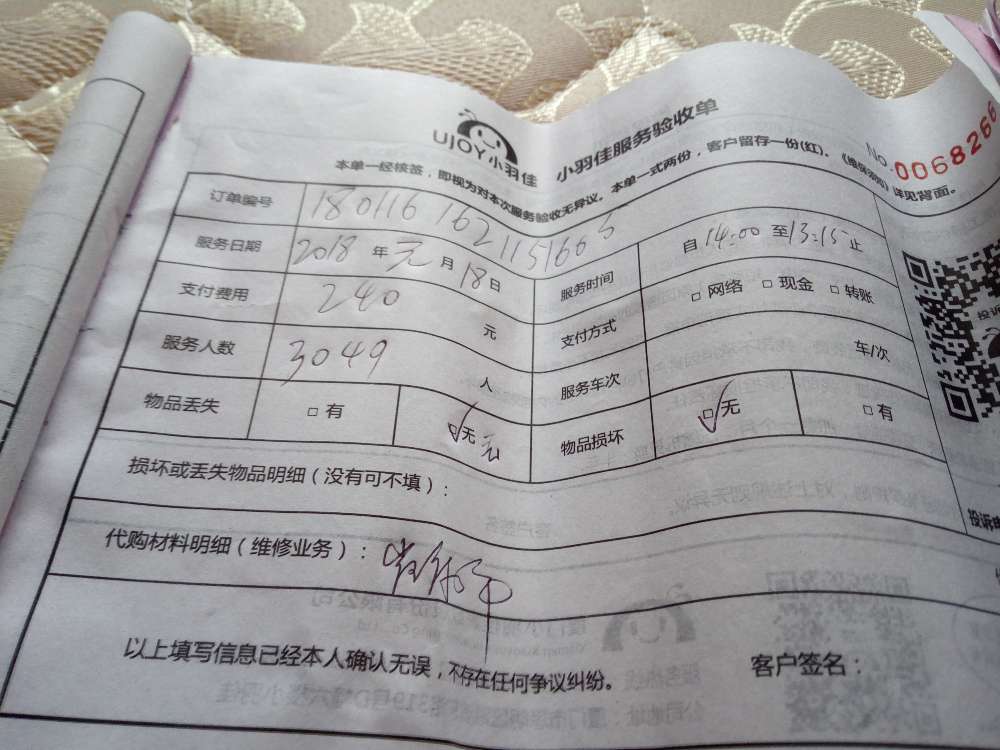 UJOY小羽佳 小羽佳服务验收单
No.0068266
本单一经核签，即视为对本次服务验收无异议。本单一式两份，客户留存一份(红)。《维保须知》详见背面。
订单编号 1801161621151665
服务日期 2018年元月18日 服务时间 自14:00至13:15止
支付费用 240 元 支付方式 □网络 □现金 □转账
服务人数 3049 人 服务车次 车/次
物品丢失 □有 □无 无 物品损坏 □无 □有
损坏或丢失物品明细（没有可不填）：
代购材料明细（维修业务）：
以上填写信息已经本人确认无误，不存在任何争议纠纷。 客户签名：
投诉